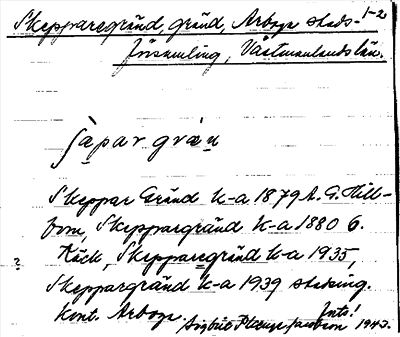 Skepparegränd, gränd, Arboga stads- 1-2
församling, Västmanlands län.
ʃàpargrän
Skeppar Gränd K-a 1879 A. G. Hill-
bom, Skeppargränd K-a 1880 G.
Käck, Skepparegränd K-a 1935,
? Skeppargränd K-a 1939 stadsing.
kont. Arboga.
Jacobson 1943.